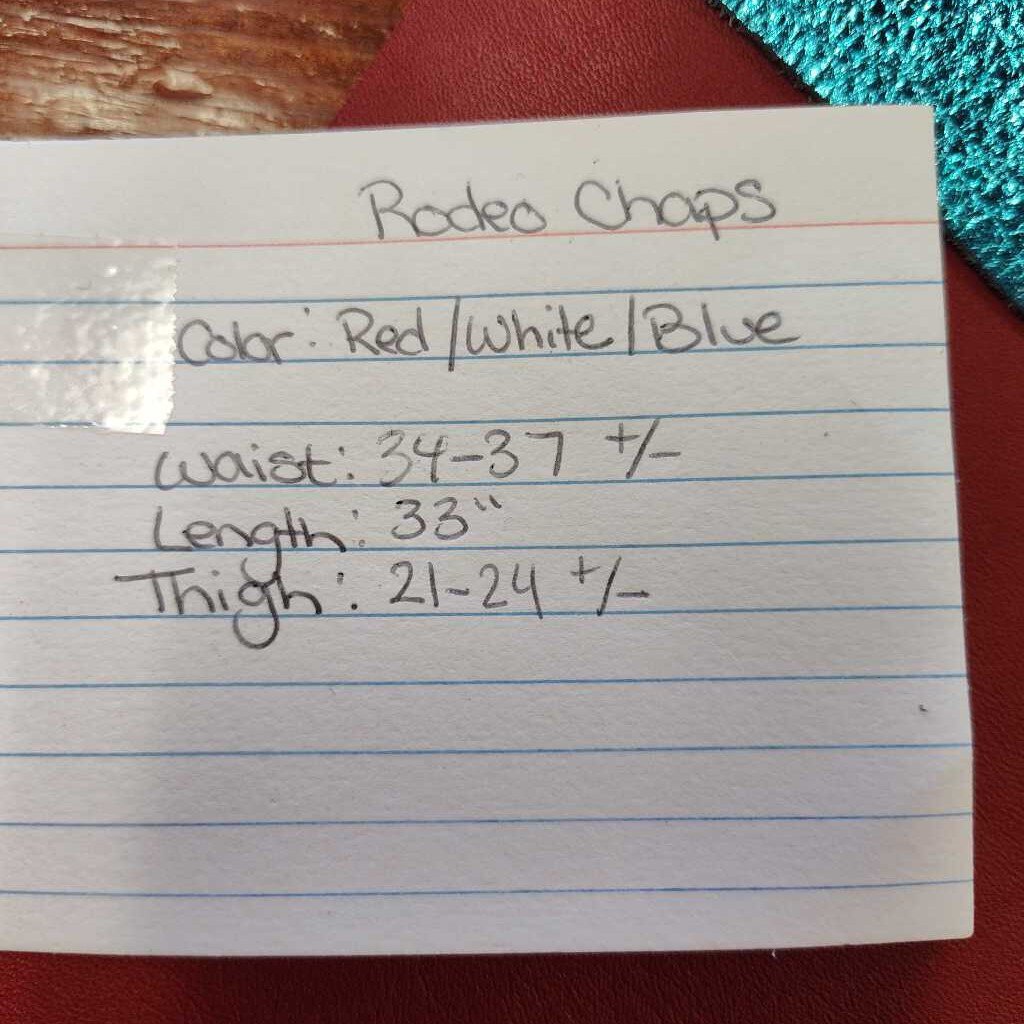 Rodeo Chaps
Color: Red/White/Blue
Waist: 34-37 +/-
Length: 33"
Thigh: 21-24 +/-